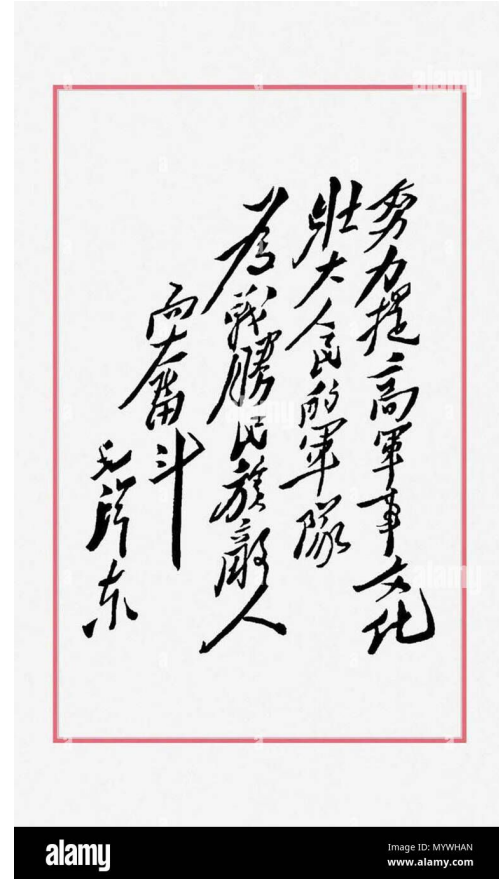 努力提高軍事文化
壯大人民的軍隊
為戰勝民族敵人
而奮斗
毛澤东
alamy
Image ID: MYWHAN
www.alamy.com